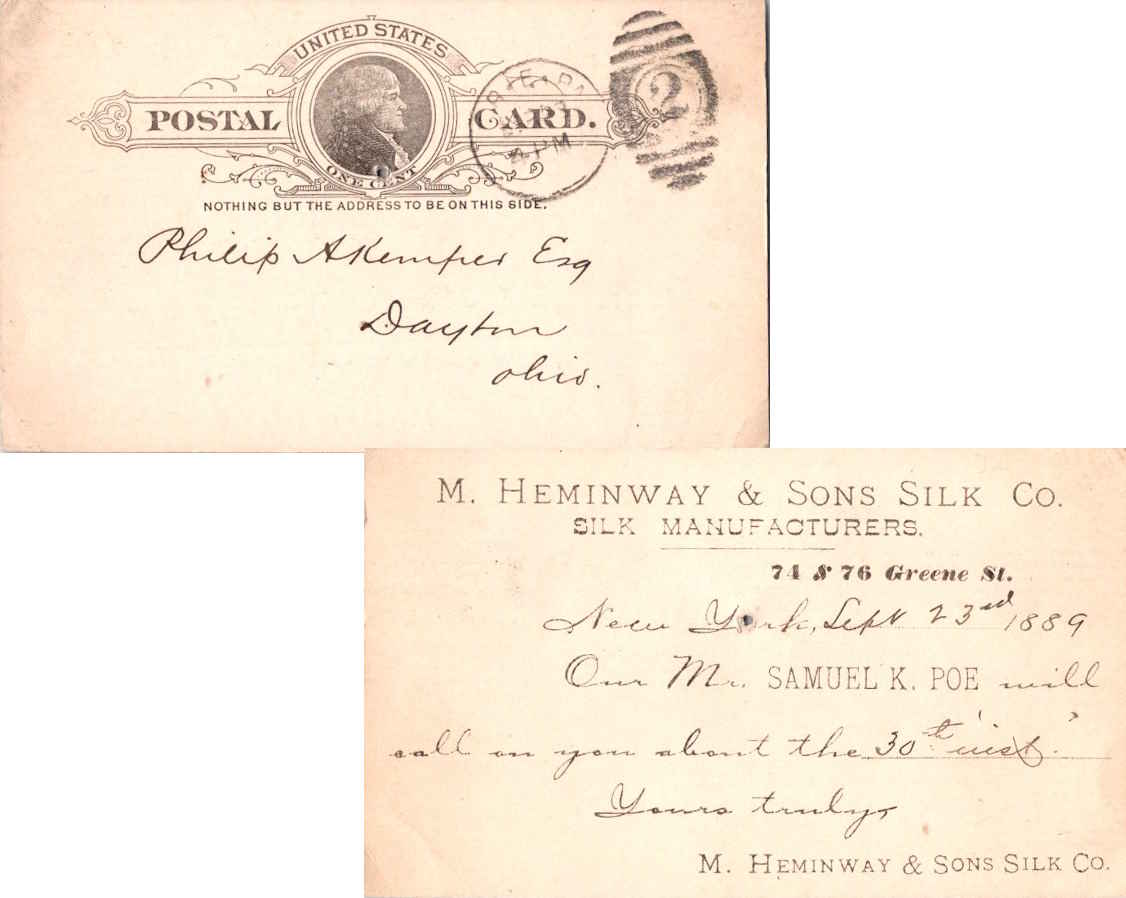 UNITED STATES
POSTAL CARD.
ONE CENT
NOTHING BUT THE ADDRESS TO BE ON THIS SIDE.
PM
2
Philip A Kemper Esq
Dayton
Ohio.
M. HEMINWAY & SONS SILK CO.
SILK MANUFACTURERS.
74 & 76 Greene St.
New York, Sept 23rd 1889
Our Mr. SAMUEL K. POE will
call on you about the 30th 'inst'.
Yours truly,
M. HEMINWAY & SONS SILK CO.